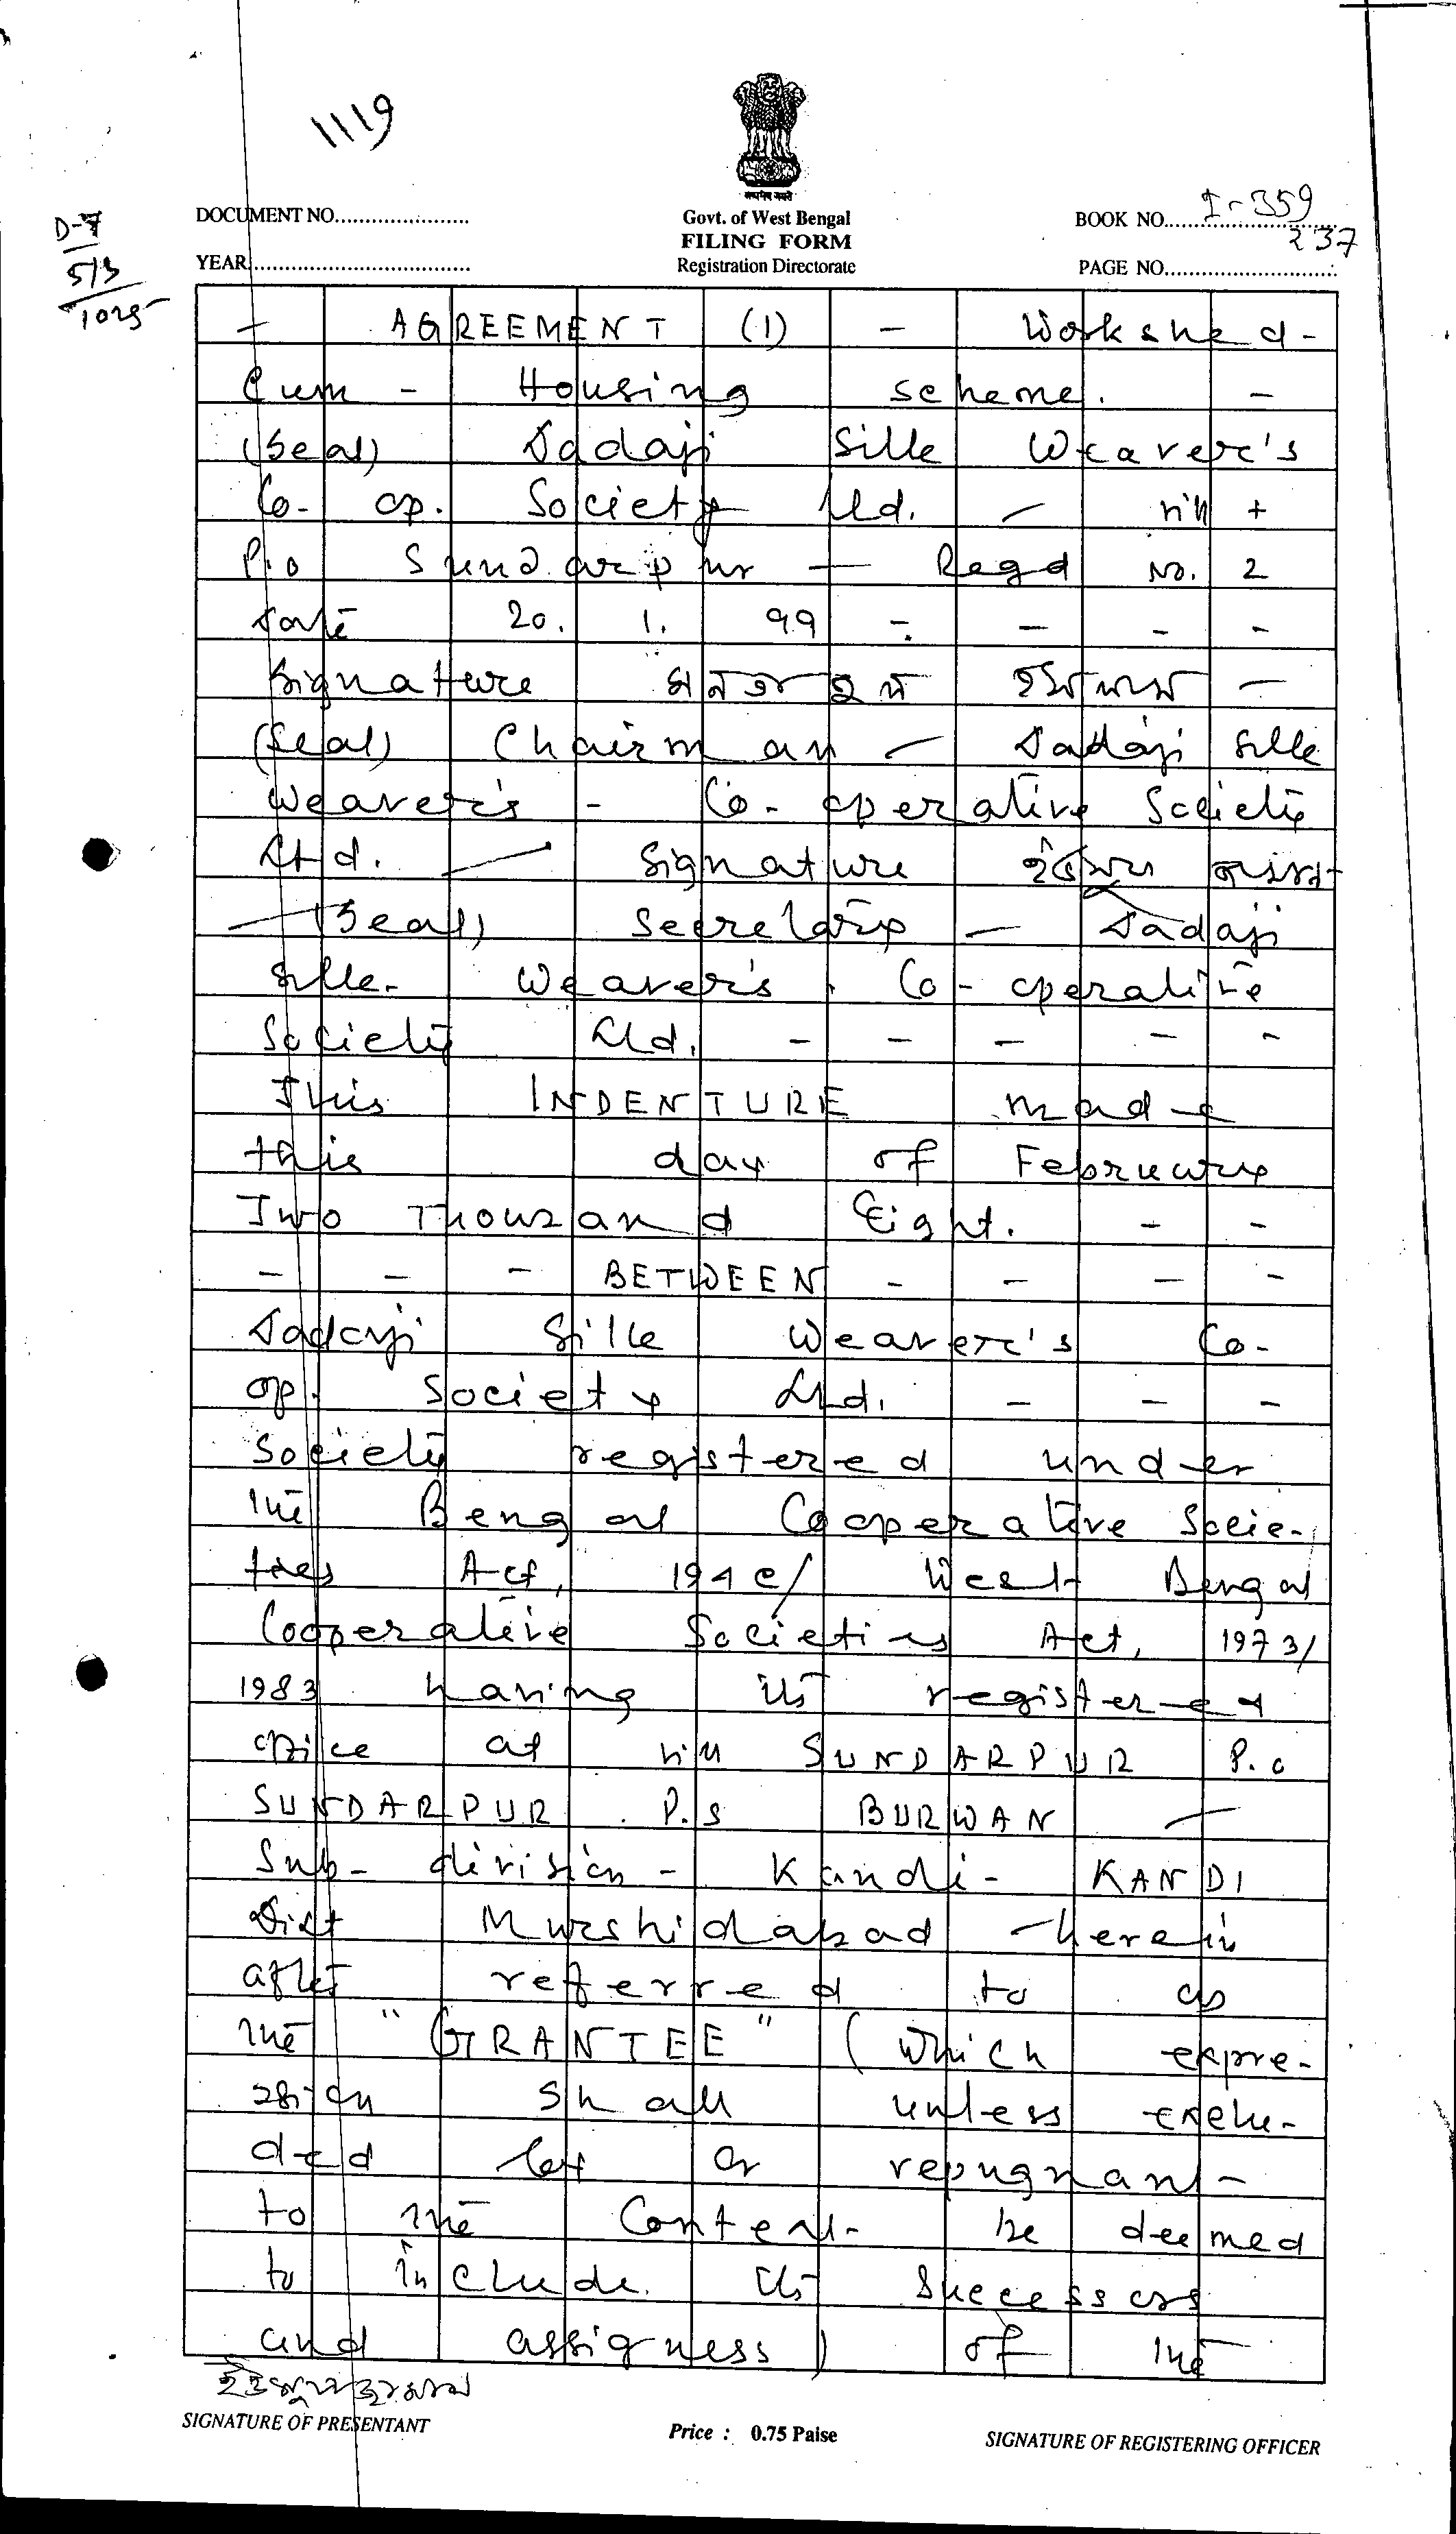 1119
D-7
5/3
1025
सत्यमेव जयते
DOCUMENT NO.
Govt. of West Bengal
BOOK NO. I-359
FILING FORM
237
YEAR
Registration Directorate
PAGE NO.
- AGREEMENT (1) - Workshed-
Cum - Housing scheme. -
(Seal) Dadaji Silk Weaver's
Co- op. Society Ltd. - vill +
P.o Sundarpur - Regd No. 2
Date 20. 1. 99 - - - -
Signature -
(Seal) Chairman - Dadaji Silk
Weaver's - Co-operative Society
Ltd. - Signature
- (Seal) Secretary - Dadaji
Silk- Weaver's Co-operative
Society Ltd. - - - - -
This INDENTURE made
this day of February
Two Thousand Eight. - -
- - - BETWEEN - - - -
Dadaji Silk Weaver's Co-
op. Society Ltd. - - -
Society registered under
the Bengal Cooperative Socie-
ties Act, 194e/ West Bengal
Cooperative Societies Act, 1973/
1983 having its registered
office at vill SUNDARPUR P.o
SUNDARPUR P.s BURWAN -
Sub-division - Kandi- KANDI
Dist Murshidabad - herein
after referred to as
the "GRANTEE" (which expre-
ssion shall unless exclu-
ded by or repugnant-
to the Context- be deemed
to include its successors
and assigness) of the
SIGNATURE OF PRESENTANT
Price : 0.75 Paise
SIGNATURE OF REGISTERING OFFICER